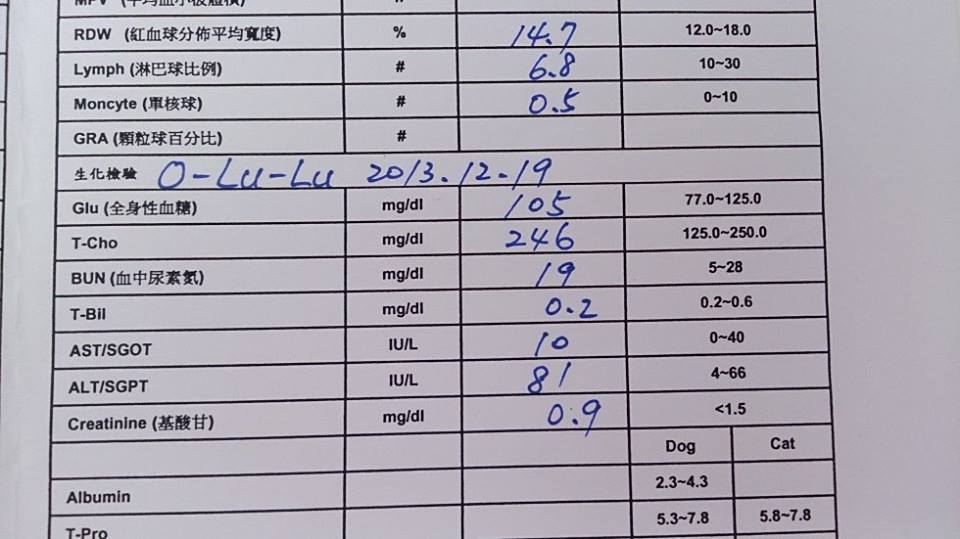 MPV (平均血小板體積) #
RDW (紅血球分佈平均寬度) % 14.7 12.0~18.0
Lymph (淋巴球比例) # 6.8 10~30
Moncyte (單核球) # 0.5 0~10
GRA (顆粒球百分比) #
生化檢驗 O-Lu-Lu 2013.12.19
Glu (全身性血糖) mg/dl 105 77.0~125.0
T-Cho mg/dl 246 125.0~250.0
BUN (血中尿素氮) mg/dl 19 5~28
T-Bil mg/dl 0.2 0.2~0.6
AST/SGOT IU/L 10 0~40
ALT/SGPT IU/L 81 4~66
Creatinine (基酸甘) mg/dl 0.9 <1.5
Dog Cat
Albumin 2.3~4.3
T-Pro 5.3~7.8 5.8~7.8